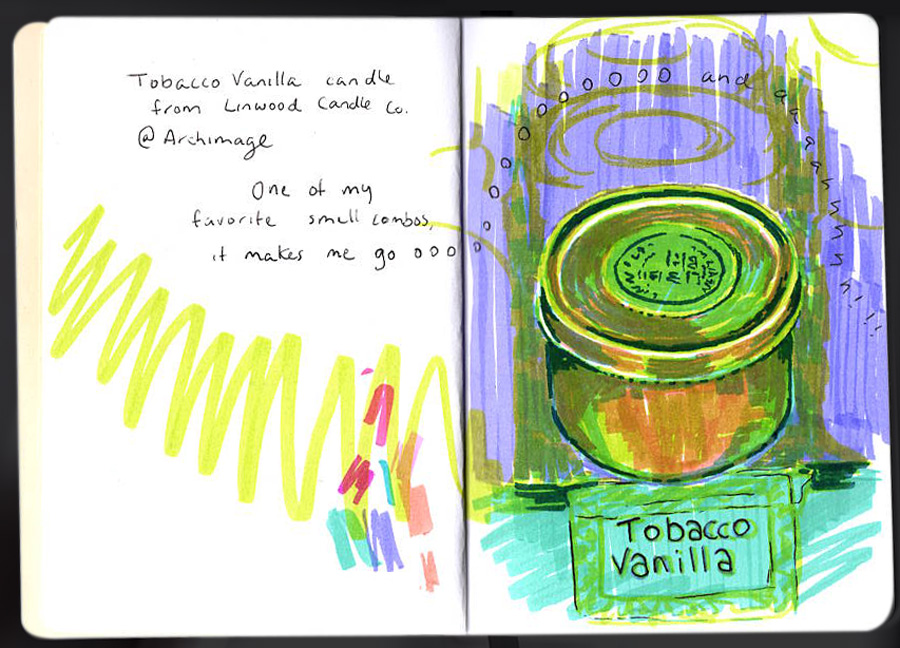 Tobacco Vanilla candle
from Linwood Candle Co.
@ Archimage
One of my
favorite smell combos,
it makes me go ooo
oooooooooo and aaaaahhhhh!!!
Tobacco
Vanilla